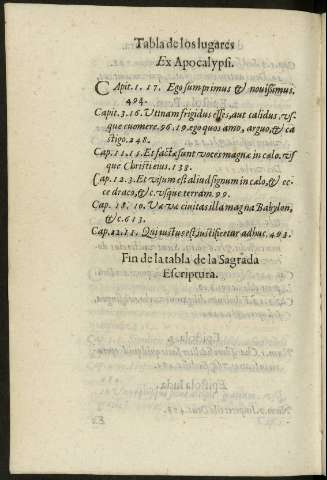 Tabla de los lugares
Ex Apocalypsi.
CApit. 1. 17. Ego sum primus & novissimus.
494.
Capit. 3. 16. Utnam frigidus esses, aut calidus, usque
que euomere. 96. 19. ego quos amo, arguo, & castigo
stigo. 248.
Cap. 11. 15. Et factæ sunt voces magnæ in cælo. usque
que Christi eius. 133.
Cap. 12. 3. Et visum est aliud signum in cælo, & ecce
ce draco, &c. usque terram. 99.
Cap. 18. 10. Væ væ ciuitas illa magna Babylon,
&c. 613.
Cap. 22. 11. Qui iustus est, iustificetur adhuc. 493.
Fin de la tabla de la Sagrada
Escriptura.